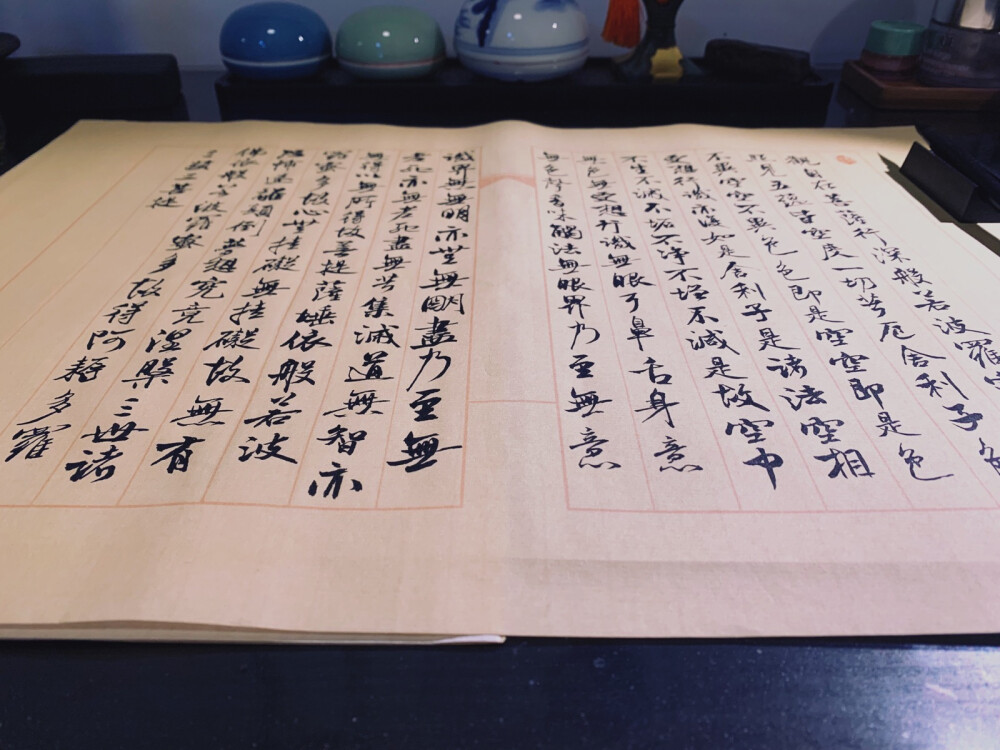 觀自在菩薩行深般若波羅
照見五蘊皆空度一切苦厄舍利子色
不異空空不異色色即是空空即是色
受想行識亦復如是舍利子是諸法空相
不生不滅不垢不淨不增不減是故空中
無色無受想行識無眼耳鼻舌身意
無色聲香味觸法無眼界乃至無意
識界無無明亦無無明盡乃至無
老死亦無老死盡無苦集滅道無智亦
無得以無所得故菩提薩埵依般若波
羅蜜多故心無挂礙無挂礙故無有
恐怖遠離顛倒夢想究竟涅槃三世諸
佛依般若波羅蜜多故得阿耨多羅
三藐三菩提